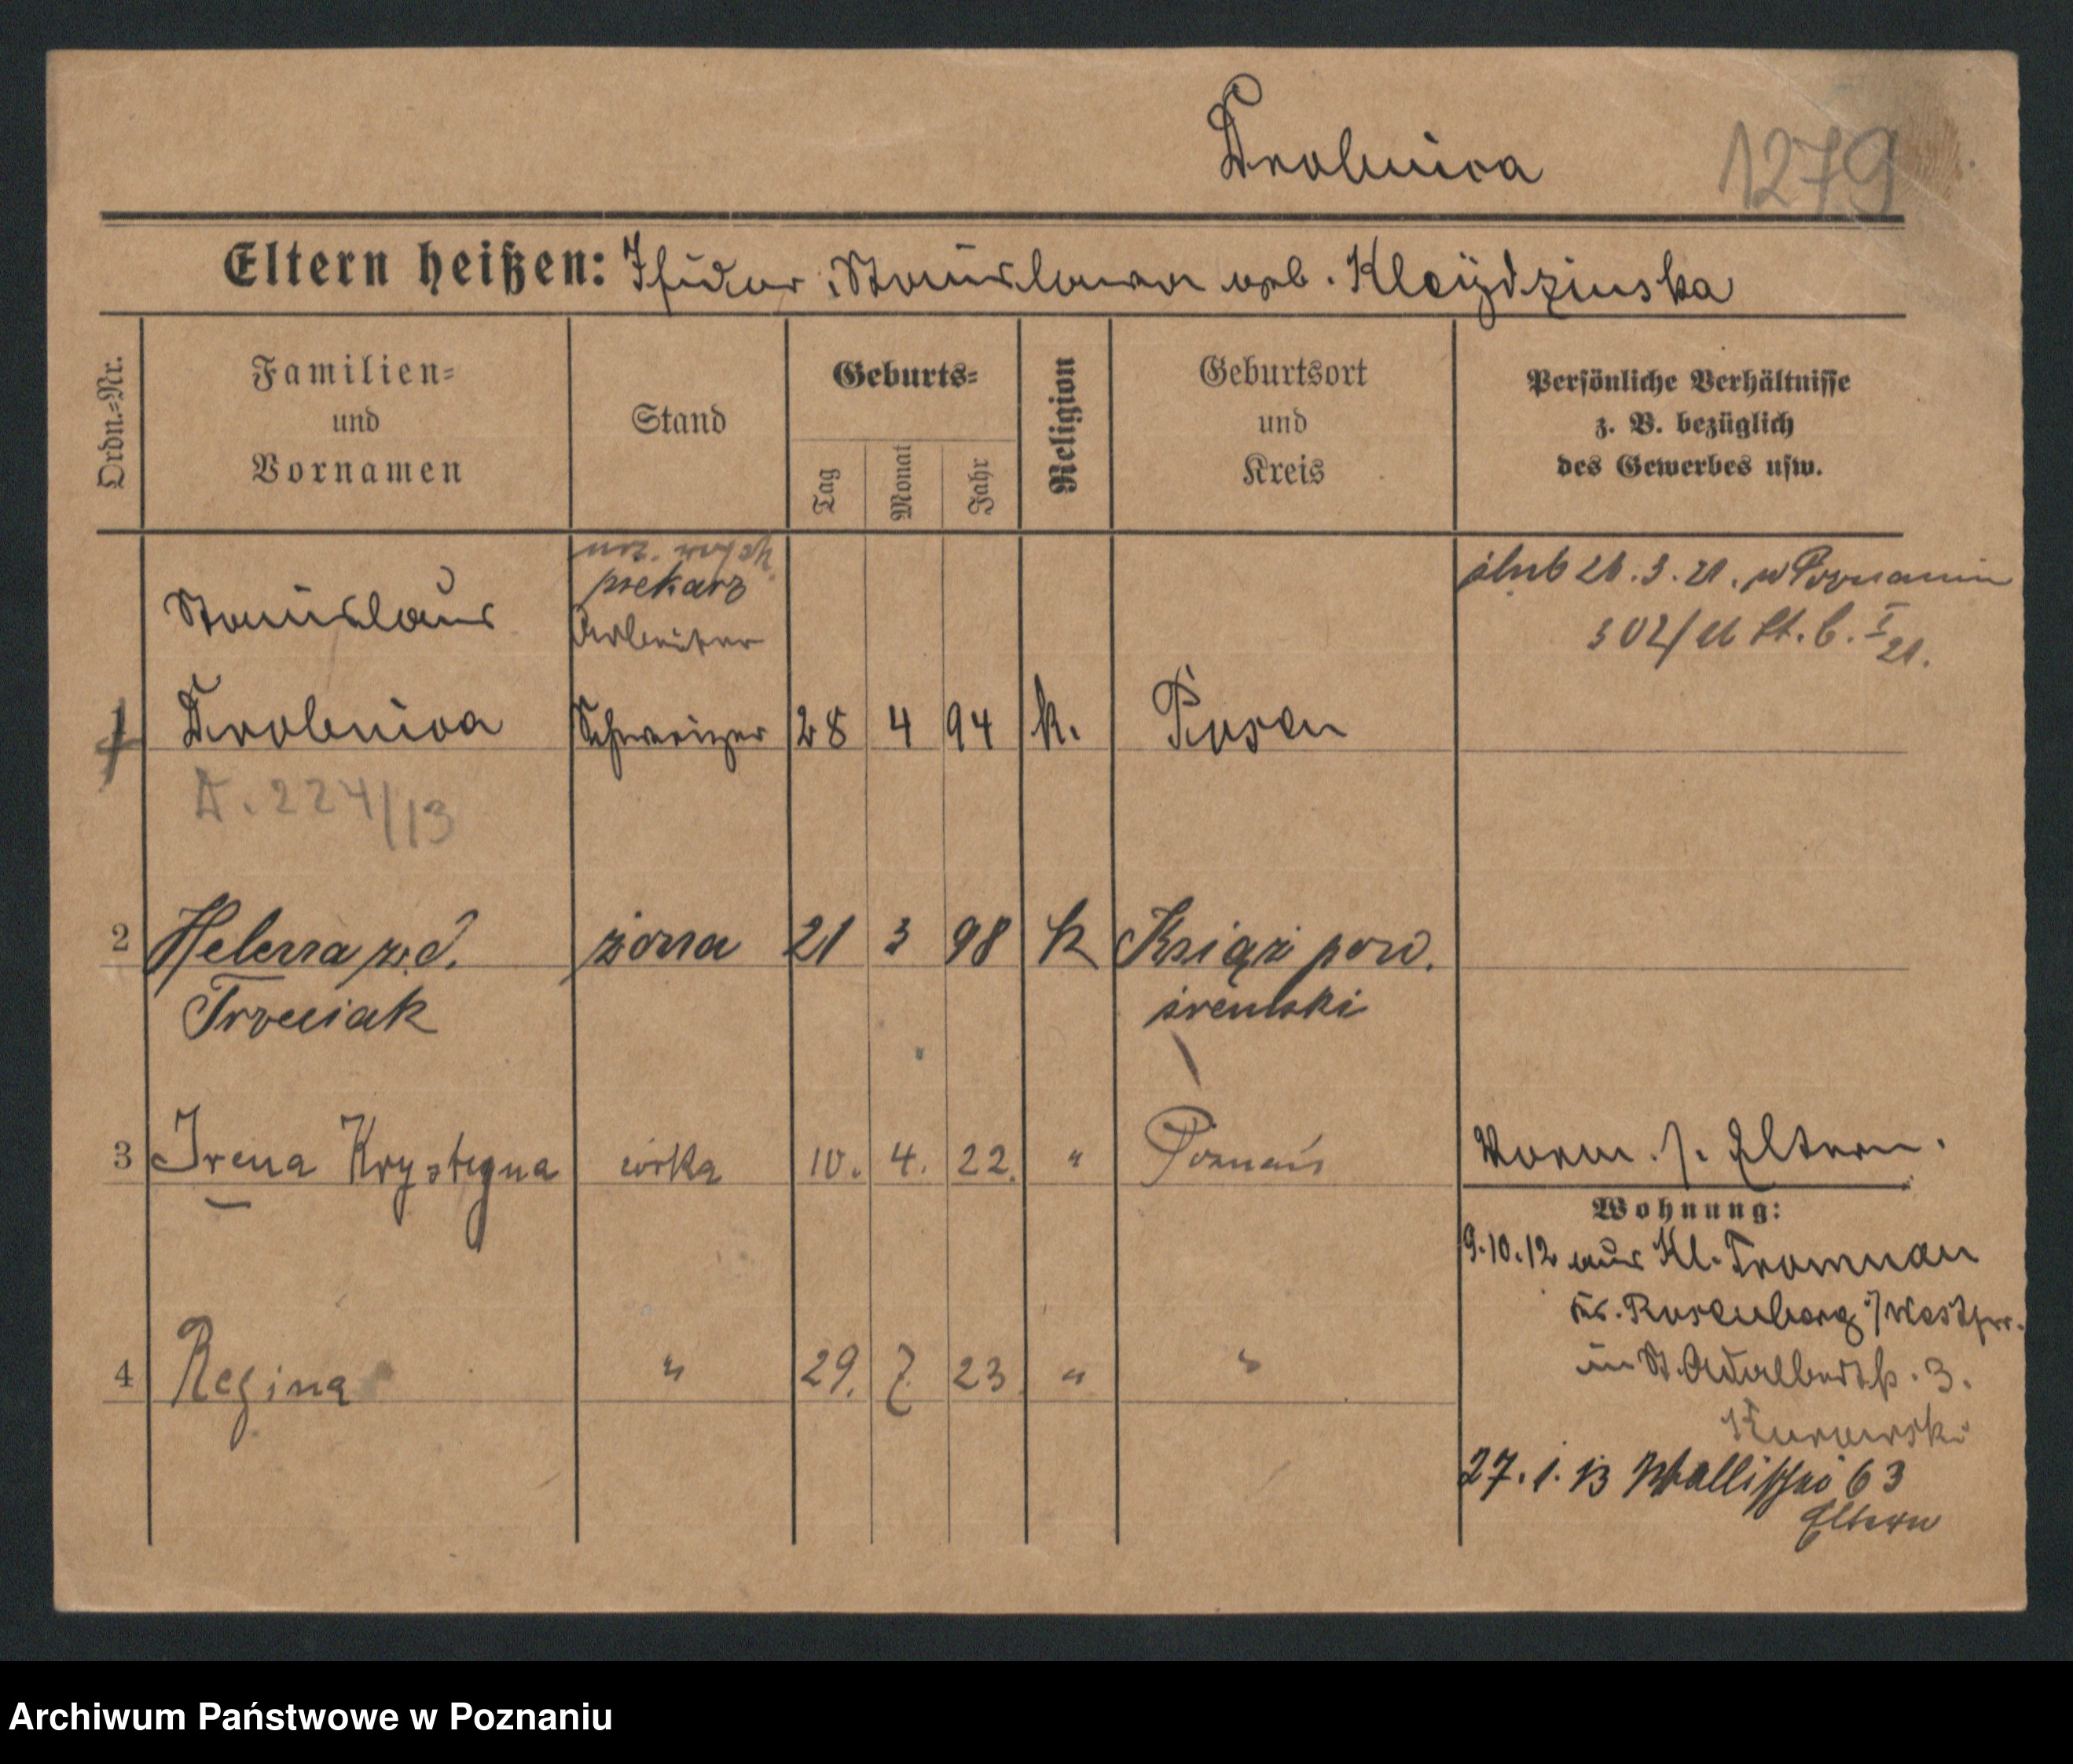 Drobnica
1279
Eltern heißen: Isidor, Stanislawa geb. Kleydzinska
Ordn.=Nr.
Familien=
und
Vornamen
Stand
Geburts=
Tag
Monat
Jahr
Religion
Geburtsort
und
Kreis
Persönliche Verhältnisse
z. B. bezüglich
des Gewerbes usw.
piekarz
Arbeiter
ślub 26.3.21. w Poznaniu
Stanislaus
Drobnica
Schweizer
28 4 94 k. Posen
D. 224/13
2 Helena z d. żona 21 3 98 k Książ pow.
Trzeciak śremski
3 Irena Krystyna córka 10. 4. 22. " Poznań
Worm. s. Eltern.
Wohnung:
9.10.12 aus Kl. Tromnau
Kr. Rosenberg i/Westpr.
in St. Adalbertstr. 3.
4 Regina " 29. 7. 23 " "
Kurowski
27.1.13 Wallischei 63
Eltern
Archiwum Państwowe w Poznaniu